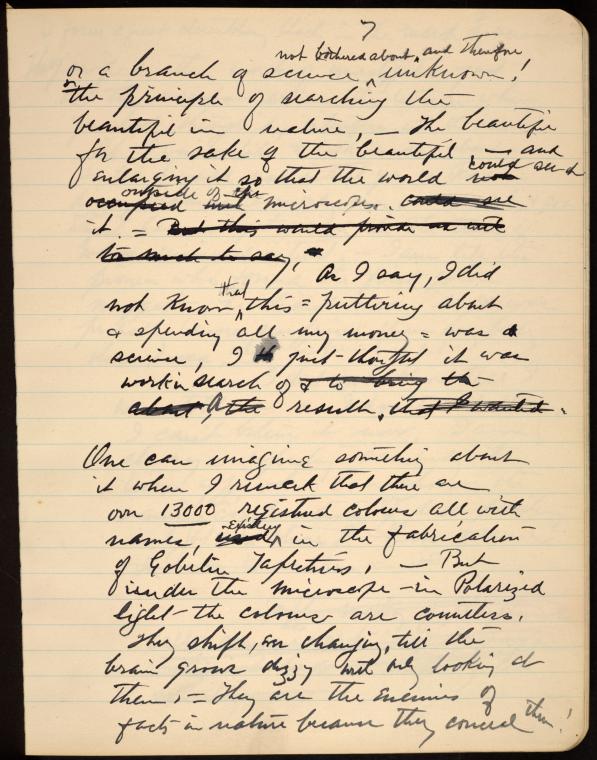 7
not bothered about, and therefore
or a branch of science unknown!
or the principle of searching the
beautiful in nature, — The beautiful
for the sake of the beautiful — and
enlarging it so that the world could see it
outside of the
occupied microscope. could see
it. = But this would provide us with
too much to say,
As I say, I did
not know that this = puttering about
& spending all my money = was a
science, I just thought it was
work in search of & to bring the
about a the result, that I wanted.
One can imagine something about
it when I remark that there are
over 13000 registered colours all with
names, used existing in the fabrication
of Gobelin Tapestries. — But
under the microscope — in Polarized
light the colours are countless.
They shift, on changing, till the
brain grows dizzy with only looking at
them. = They are the enemies of
facts in nature because they conceal them!